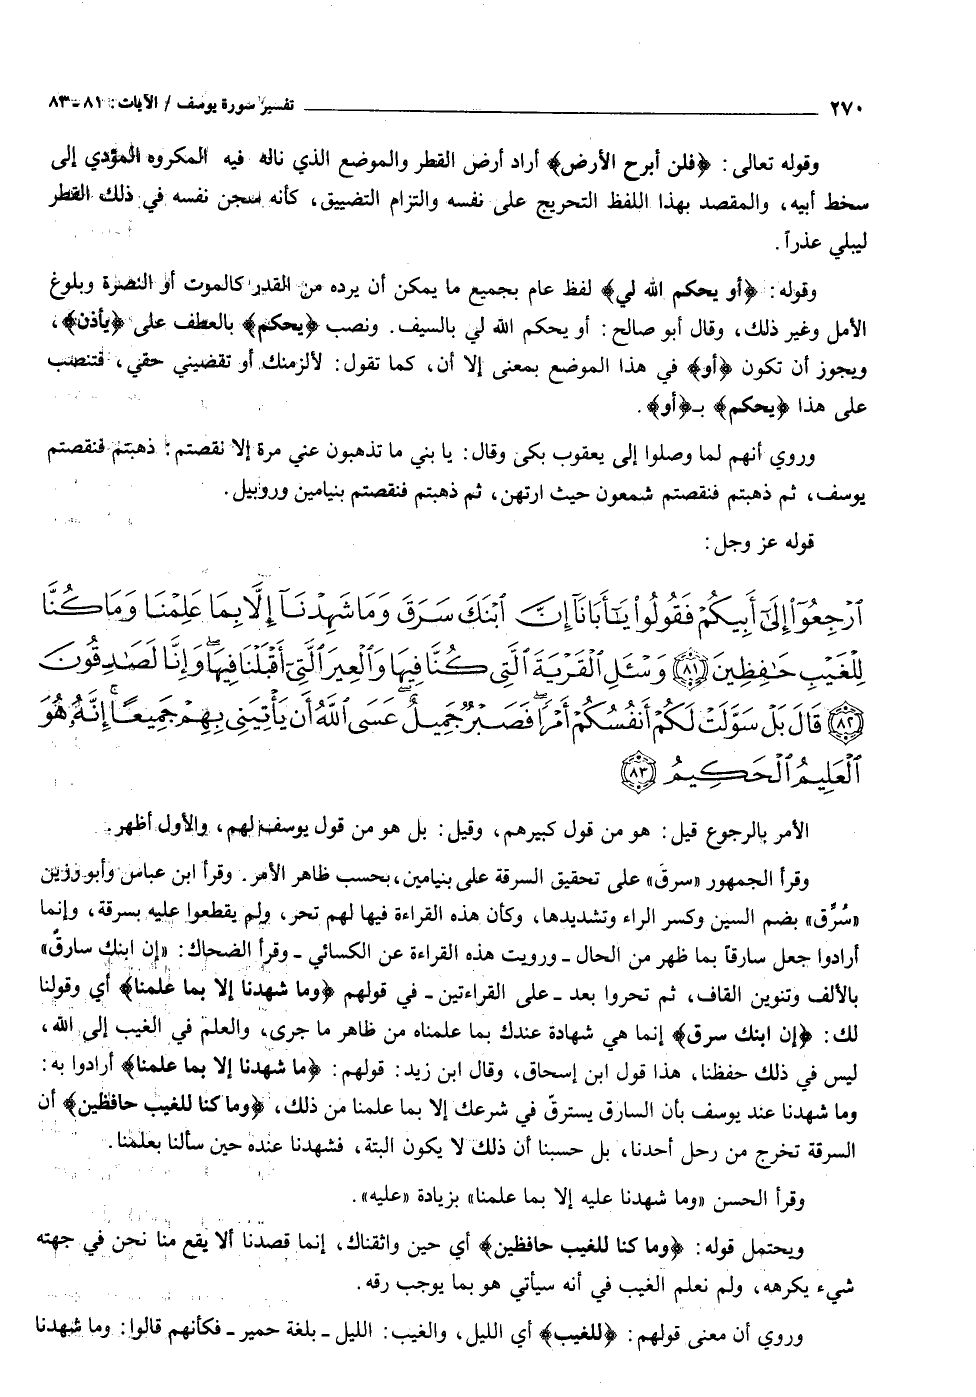 ٢٧٠ تفسير سورة يوسف / الآيات: ٨١ - ٨٣
وقوله تعالى: ﴿فلن أبرح الأرض﴾ أراد أرض القطر والموضع الذي ناله فيه المكروه المؤدي إلى
سخط أبيه، والمقصد بهذا اللفظ التحريج على نفسه والتزام التضييق، كأنه سجن نفسه في ذلك القطر
ليبلي عذراً.
وقوله: ﴿أو يحكم الله لي﴾ لفظ عام بجميع ما يمكن أن يرده من القدر كالموت أو النصرة وبلوغ
الأمل وغير ذلك، وقال أبو صالح: أو يحكم الله لي بالسيف. ونصب ﴿يحكم﴾ بالعطف على ﴿يأذن﴾،
ويجوز أن تكون ﴿أو﴾ في هذا الموضع بمعنى إلا أن، كما تقول: لألزمنك أو تقضيني حقي، فتنصب
على هذا ﴿يحكم﴾ بـ﴿أو﴾.
وروي أنهم لما وصلوا إلى يعقوب بكى وقال: يا بني ما تذهبون عني مرة إلا نقصتم: ذهبتم فنقصتم
يوسف، ثم ذهبتم فنقصتم شمعون حيث ارتهن، ثم ذهبتم فنقصتم بنيامين وروبيل.
قوله عز وجل:
ٱرْجِعُوٓا۟ إِلَىٰٓ أَبِيكُمْ فَقُولُوا۟ يَـٰٓأَبَانَآ إِنَّ ٱبْنَكَ سَرَقَ وَمَا شَهِدْنَآ إِلَّا بِمَا عَلِمْنَا وَمَا كُنَّا
لِلْغَيْبِ حَـٰفِظِينَ ﴿٨١﴾ وَسْـَٔلِ ٱلْقَرْيَةَ ٱلَّتِى كُنَّا فِيهَا وَٱلْعِيرَ ٱلَّتِىٓ أَقْبَلْنَا فِيهَا ۖ وَإِنَّا لَصَـٰدِقُونَ
﴿٨٢﴾ قَالَ بَلْ سَوَّلَتْ لَكُمْ أَنفُسُكُمْ أَمْرًا ۖ فَصَبْرٌ جَمِيلٌ ۖ عَسَى ٱللَّهُ أَن يَأْتِيَنِى بِهِمْ جَمِيعًا ۚ إِنَّهُۥ هُوَ
ٱلْعَلِيمُ ٱلْحَكِيمُ ﴿٨٣﴾
الأمر بالرجوع قيل: هو من قول كبيرهم، وقيل: بل هو من قول يوسف لهم، والأول أظهر.
وقرأ الجمهور «سرقَ» على تحقيق السرقة على بنيامين، بحسب ظاهر الأمر. وقرأ ابن عباس وأبو رزين
«سُرِّق» بضم السين وكسر الراء وتشديدها، وكأن هذه القراءة فيها لهم تحر، ولم يقطعوا عليه بسرقة، وإنما
أرادوا جعل سارقاً بما ظهر من الحال ـ ورويت هذه القراءة عن الكسائي ـ وقرأ الضحاك: «إن ابنك سارقٌ»
بالألف وتنوين القاف، ثم تحروا بعد ـ على القراءتين ـ في قولهم ﴿وما شهدنا إلا بما علمنا﴾ أي وقولنا
لك: ﴿إن ابنك سرق﴾ إنما هي شهادة عندك بما علمناه من ظاهر ما جرى، والعلم في الغيب إلى الله،
ليس في ذلك حفظنا، هذا قول ابن إسحاق، وقال ابن زيد: قولهم: ﴿ما شهدنا إلا بما علمنا﴾ أرادوا به:
وما شهدنا عند يوسف بأن السارق يسترقّ في شرعك إلا بما علمنا من ذلك، ﴿وما كنا للغيب حافظين﴾ أن
السرقة تخرج من رحل أحدنا، بل حسبنا أن ذلك لا يكون البتة، فشهدنا عنده حين سألنا بعلمنا.
وقرأ الحسن «وما شهدنا عليه إلا بما علمنا» بزيادة «عليه».
ويحتمل قوله: ﴿وما كنا للغيب حافظين﴾ أي حين واثقناك، إنما قصدنا ألا يقع منا نحن في جهته
شيء يكرهه، ولم نعلم الغيب في أنه سيأتي هو بما يوجب رقه.
وروي أن معنى قولهم: ﴿للغيب﴾ أي الليل، والغيب: الليل ـ بلغة حمير ـ فكأنهم قالوا: وما شهدنا